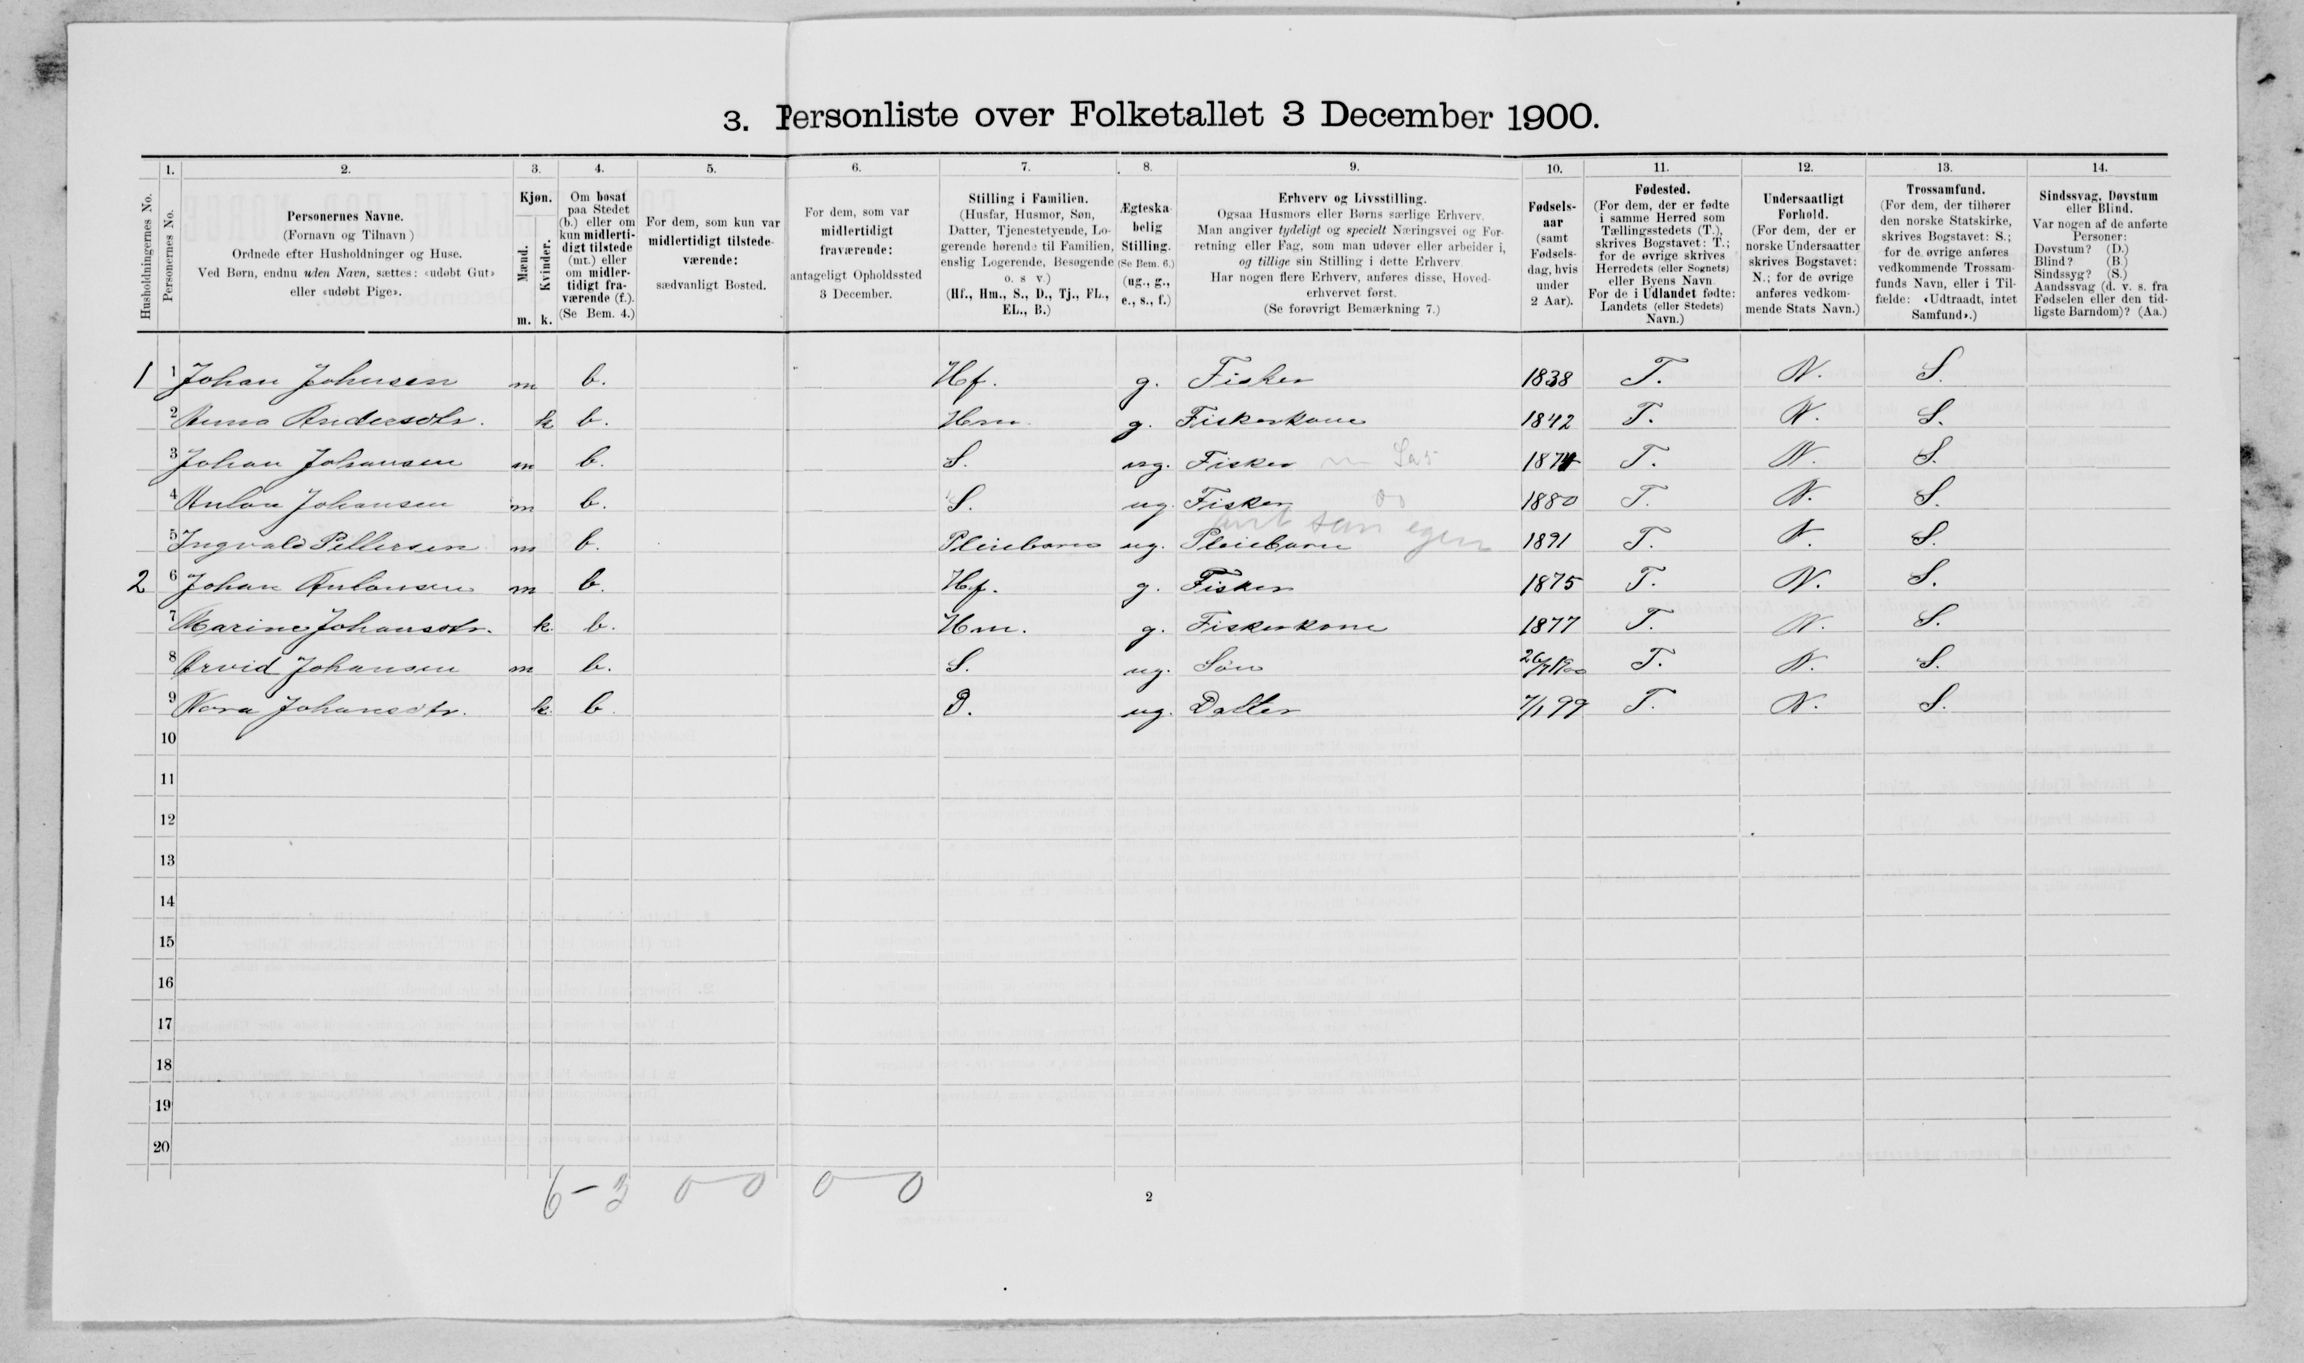 3. Personliste over Folketallet 3 December 1900.
1. 2. 3. 4. 5. 6. 7. 8. 9. 10. 11. 12. 13. 14.
Husholdningernes No.
Personernes No.
Personernes Navne.
(Fornavn og Tilnavn)
Ordnede efter Husholdninger og Huse.
Ved Børn, endnu uden Navn, sættes: «udøbt Gut»
eller «udøbt Pige».
Kjøn.
Mænd.
Kvinder.
m. k.
Om bosat
paa Stedet
(b.) eller om
kun midlerti-
digt tilstede
(mt.) eller
om midler-
tidigt fra-
værende (f.).
(Se Bem. 4.)
For dem, som kun var
midlertidigt tilstede-
værende:
sædvanligt Bosted.
For dem, som var
midlertidigt
fraværende:
antageligt Opholdssted
3 December.
Stilling i Familien.
(Husfar, Husmor, Søn,
Datter, Tjenestetyende, Lo-
gerende hørende til Familien,
enslig Logerende, Besøgende
o. s v.)
(Hf., Hm., S., D., Tj., FL.,
EL., B.)
Ægteska-
belig
Stilling.
(Se Bem. 6.)
(ug., g.,
e., s., f.)
Erhverv og Livsstilling.
Ogsaa Husmors eller Børns særlige Erhverv.
Man angiver tydeligt og specielt Næringsvei og For-
retning eller Fag, som man udøver eller arbeider i,
og tillige sin Stilling i dette Erhverv.
Har nogen flere Erhverv, anføres disse, Hoved-
erhvervet først.
(Se forøvrigt Bemærkning 7.)
Fødsels-
aar
(samt
Fødsels-
dag, hvis
under
2 Aar).
Fødested.
(For dem, der er fødte
i samme Herred som
Tællingsstedets (T.),
skrives Bogstavet: T.;
for de øvrige skrives
Herredets (eller Sognets)
eller Byens Navn.
For de i Udlandet fødte:
Landets (eller Stedets)
Navn.)
Undersaatligt
Forhold.
(For dem, der er
norske Undersaatter
skrives Bogstavet:
N.; for de øvrige
anføres vedkom-
mende Stats Navn.)
Trossamfund.
(For dem, der tilhører
den norske Statskirke,
skrives Bogstavet: S.;
for de øvrige anføres
vedkommende Trossam-
funds Navn, eller i Til-
fælde: «Udtraadt, intet
Samfund».)
Sindssvag, Døvstum
eller Blind.
Var nogen af de anførte
Personer:
Døvstum? (D.)
Blind? (B.)
Sindssyg? (S.)
Aandssvag (d. v. s. fra
Fødselen eller den tid-
ligste Barndom)? (Aa.)
1 1 Johan Johnsen m b. Hf. g. Fisker 1838 T. N. S.
2 Anna Andersdtr. k b. Hm. g. Fiskerkone 1842 T. N. S.
3 Johan Johansen m b. S. ug. Fisker T. N. S.
4 Anton Johansen m b. S. ug. Fisker 1880 T. N. S.
5 Ingvald Pettersen m b. Pleiebarn ug. Pleiebarn 1891 T. N. S.
2 6 Johan Antonsen m b. Hf. g. Fisker 1875 T. N. S.
7 Marine Johansdtr. k. b. Hm. g. Fiskerkone 1877 T. N. S.
8 Arvid Johansen m b. S. ug. Søn T. N. S.
9 Nora Johansdtr. k. b. D. ug. Datter 7/1 99 T. N. S.
10
11
12
13
14
15
16
17
18
19
20
6-3 0 0 0 0
2